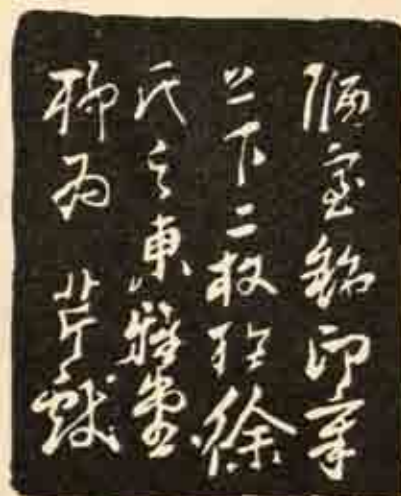 陋室銘印章
上下二枚於徐
氏之東雅堂
聊為 芹獻